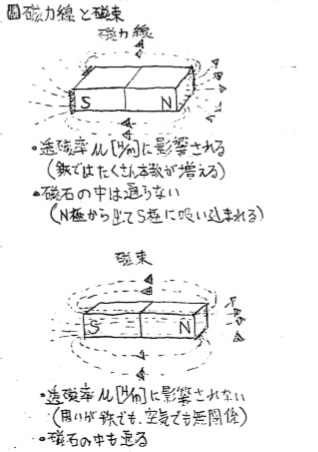 磁力線と磁束
磁力線
S N
・透磁率μ[H/m]に影響される
(鉄ではたくさん本数が増える)
・磁石の中は通らない
(N極から出てS極に吸い込まれる)
磁束
S N
・透磁率μ[H/m]に影響されない
(周りが鉄でも、空気でも無関係)
・磁石の中も通る